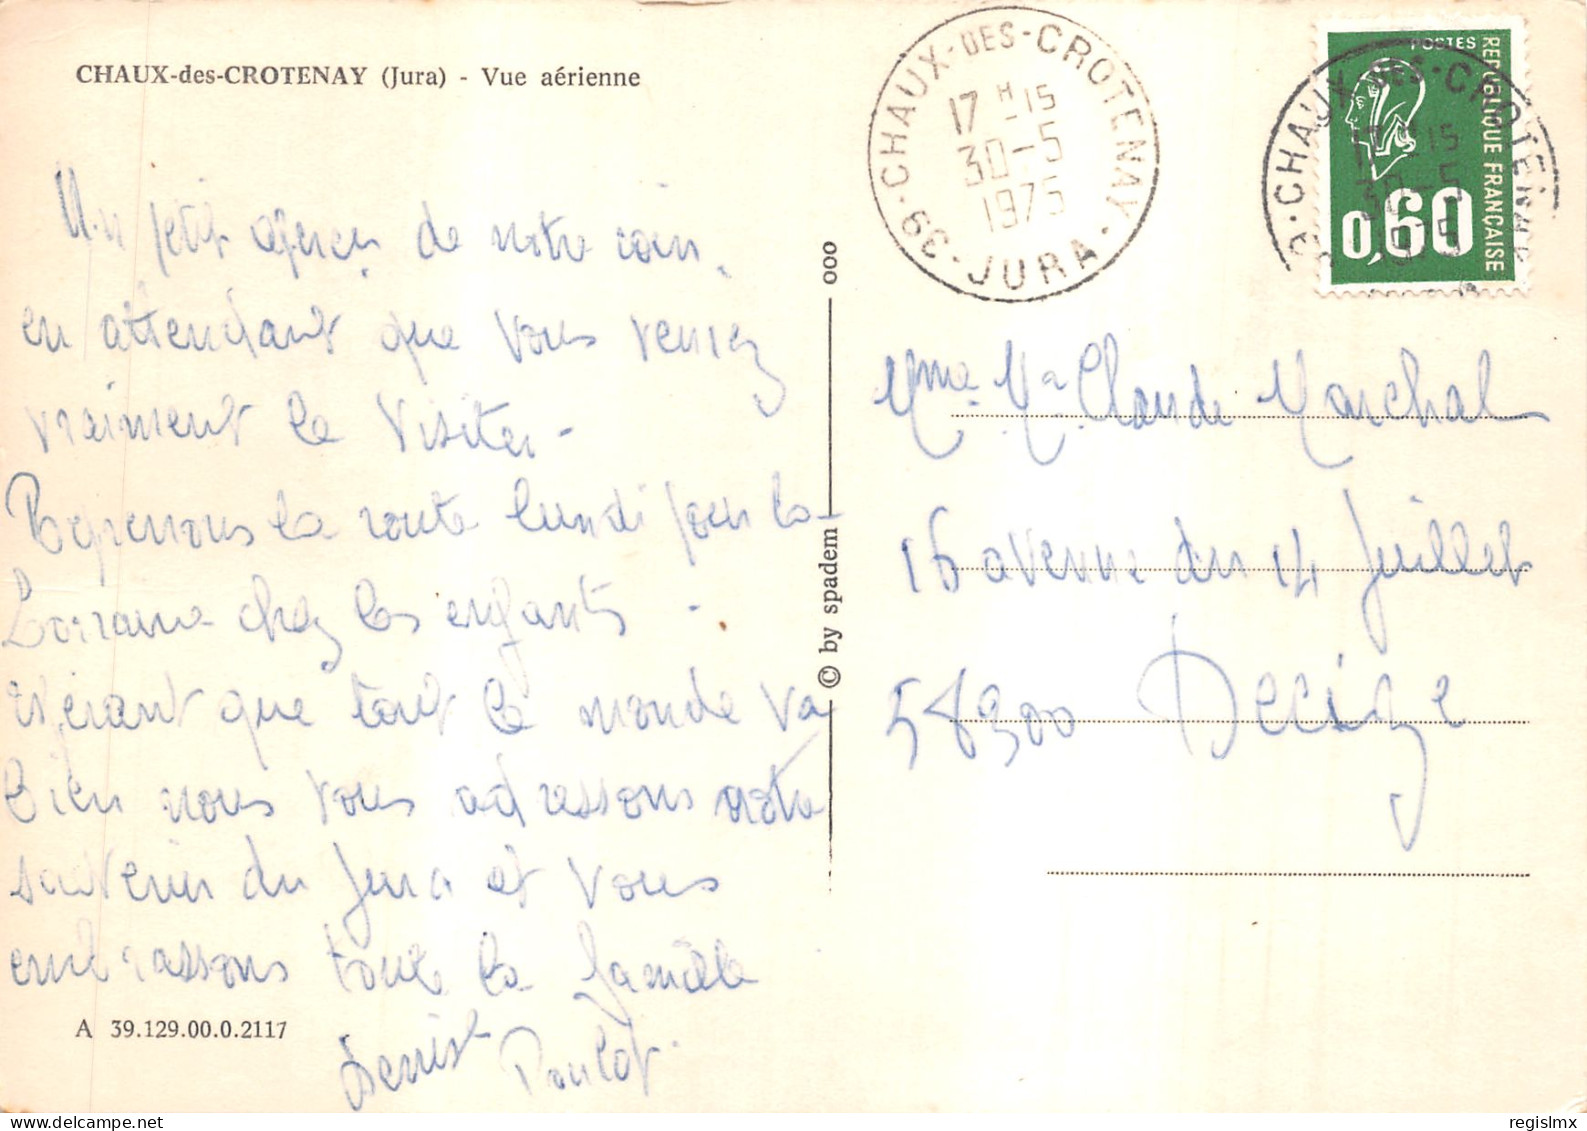 CHAUX-des-CROTENAY (Jura) - Vue aérienne
Un petit aperçu de notre coin,
en attendant que vous veniez
vraiment le visiter -
Reprenons la route lundi pour la
Lorraine chez les enfants -
Espérant que tout le monde va
bien nous vous adressons notre
souvenir du Jura et vous
embrassons toute la famille
Poulot.
A 39.129.00.0.2117
© by spadem
000
CHAUX-DES-CROTENAY
17 H -15
30-5
1975
39-JURA
POSTES
REPUBLIQUE FRANÇAISE
0,60
CHAUX-DES-CROTENAY
17 H -15
30-5
1975
Mme Ma Claude Marchal
16 avenue du 14 Juillet
58300 Decize
regislmx